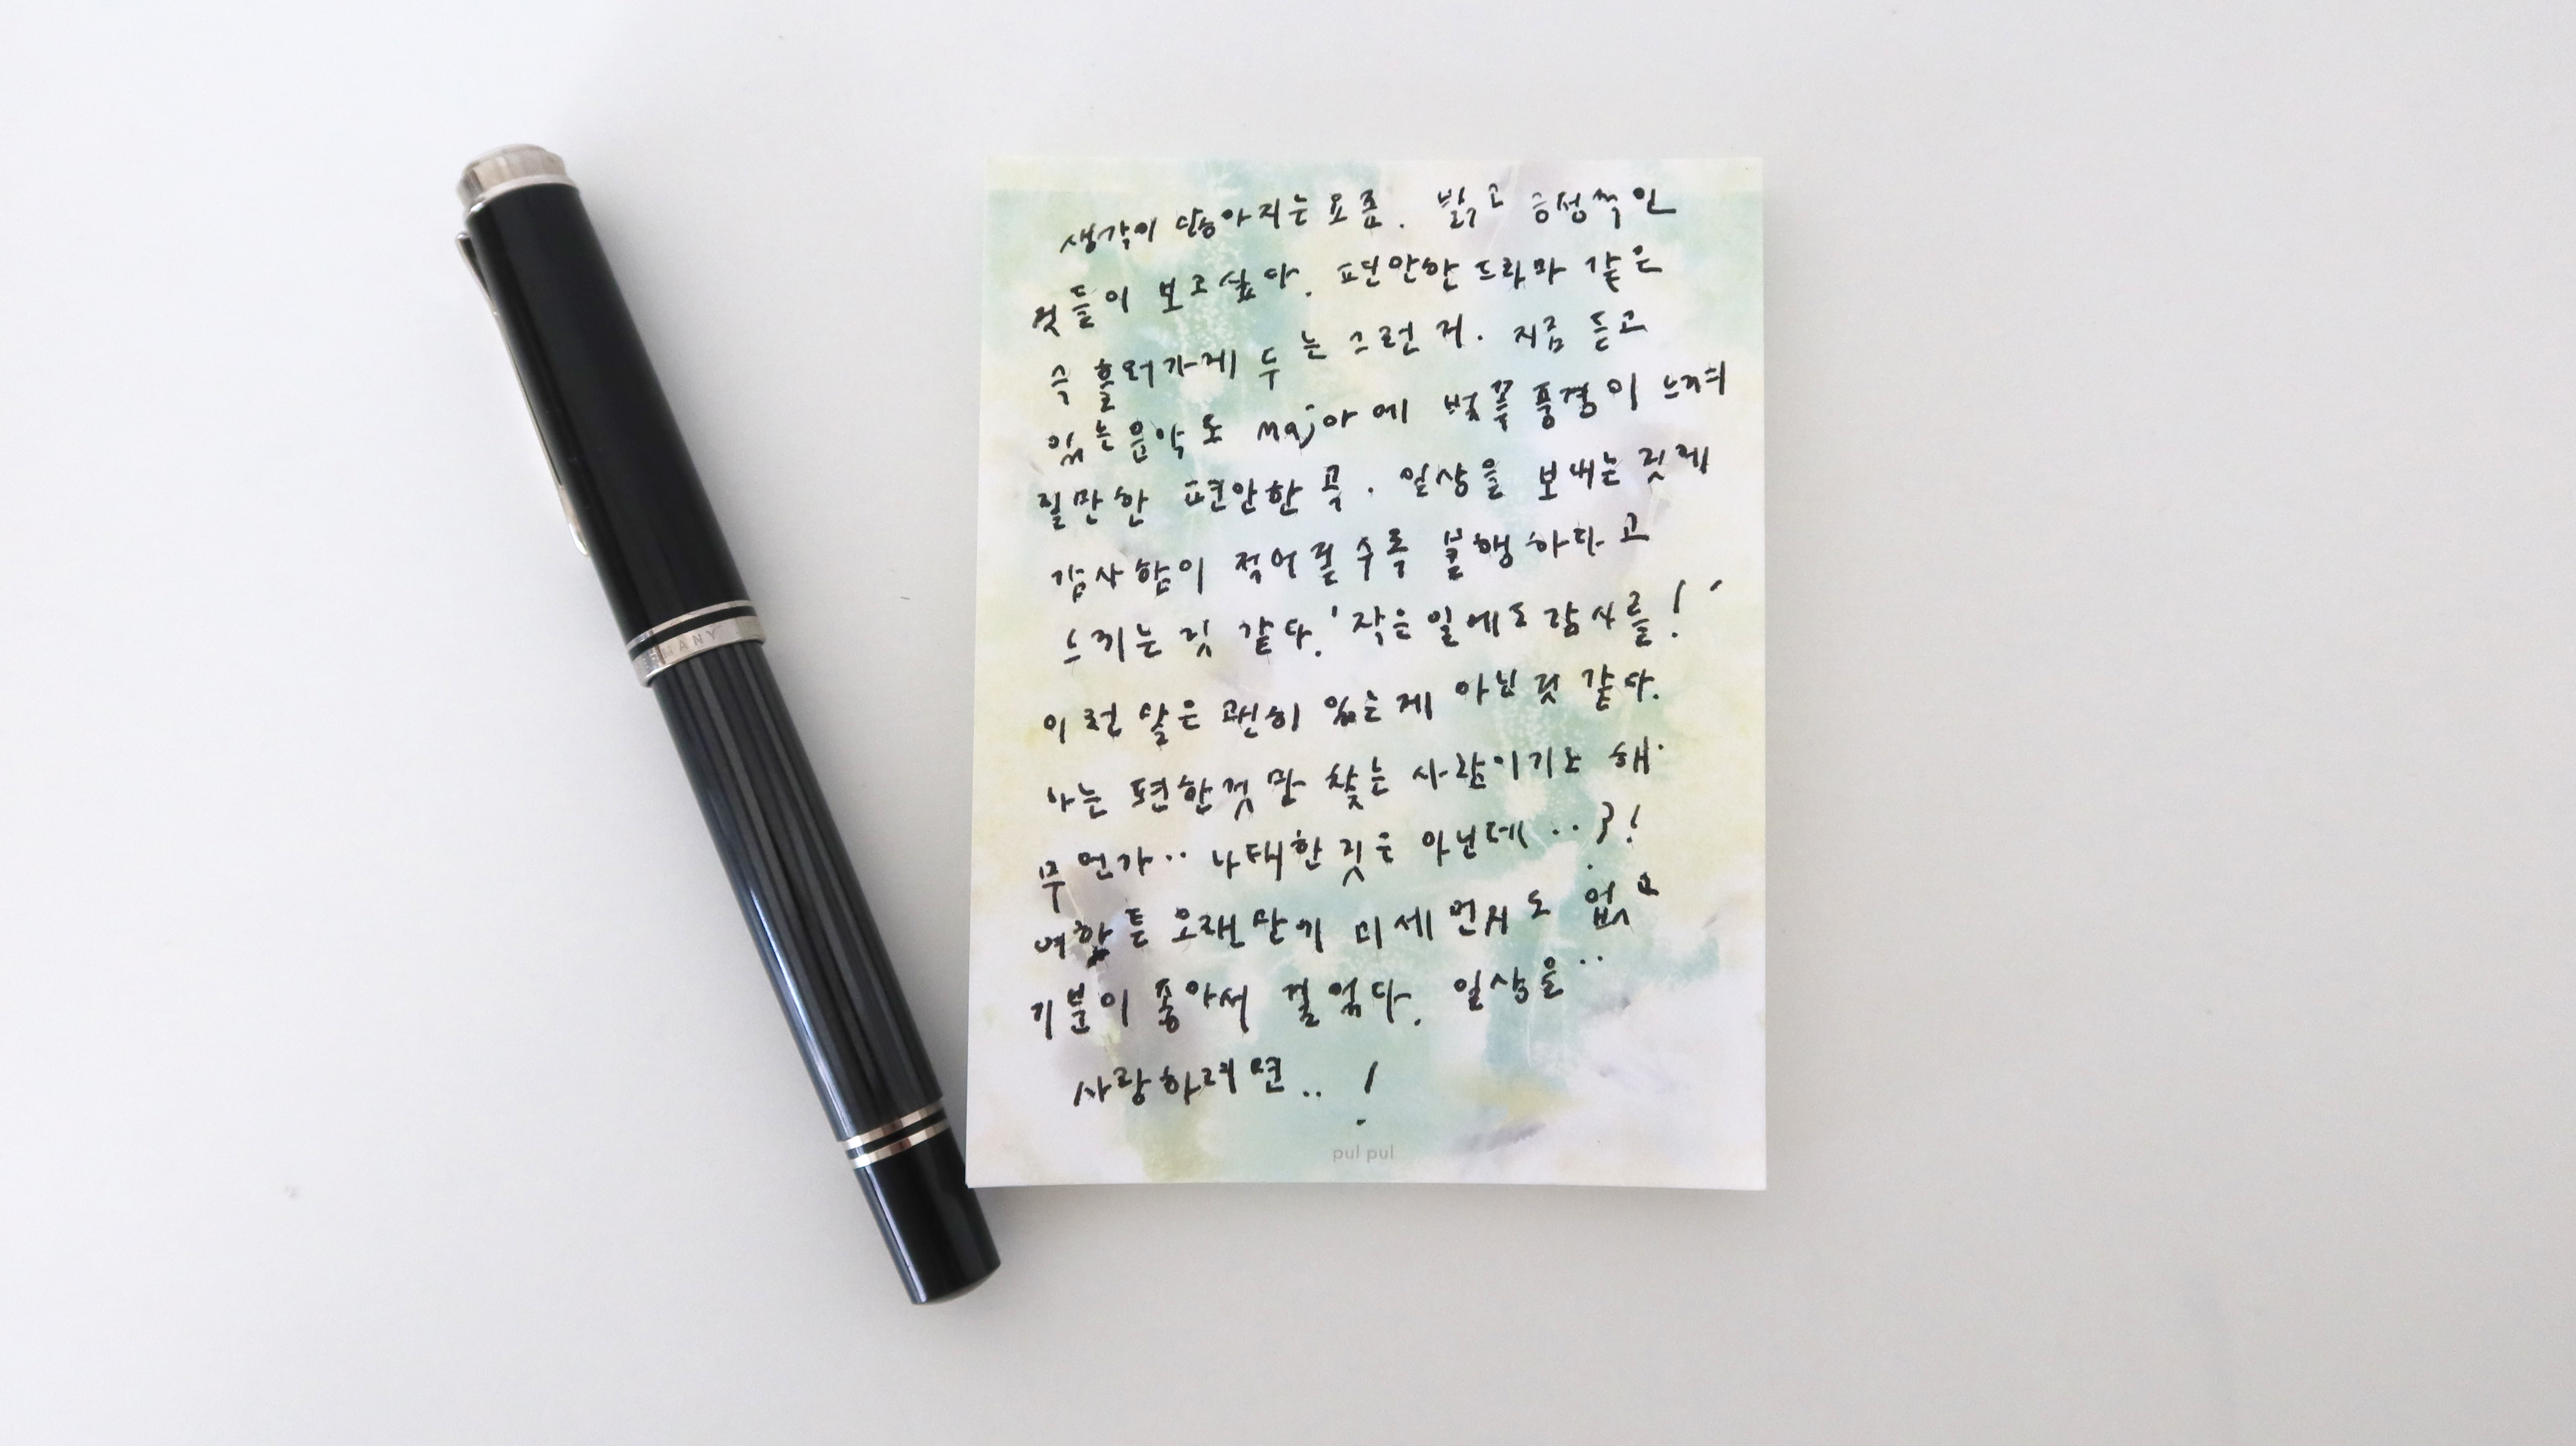 생각이 많아지는 요즘. 밝고 긍정적인
것들이 보고싶다. 편안한 드라마 같은
즉 흘러가게 두는 그런 거. 지금 듣고
있는 음악도 major에 벚꽃 풍경이 느껴
질만한 편안한 곡. 일상을 보내는 것에
감사함이 적어질수록 불행하다고
느끼는 것 같다. '작은 일에도 감사를!'
이런 말은 괜히 있는게 아닌 것 같다.
나는 편한것만 찾는 사람이기도 해
무언가.. 나태한 것은 아닌데..?!
여하튼 오랜만에 미세먼지도 없고
기분이 좋아서 걸었다. 일상을..
사랑하려면..!
pul pul
MANY